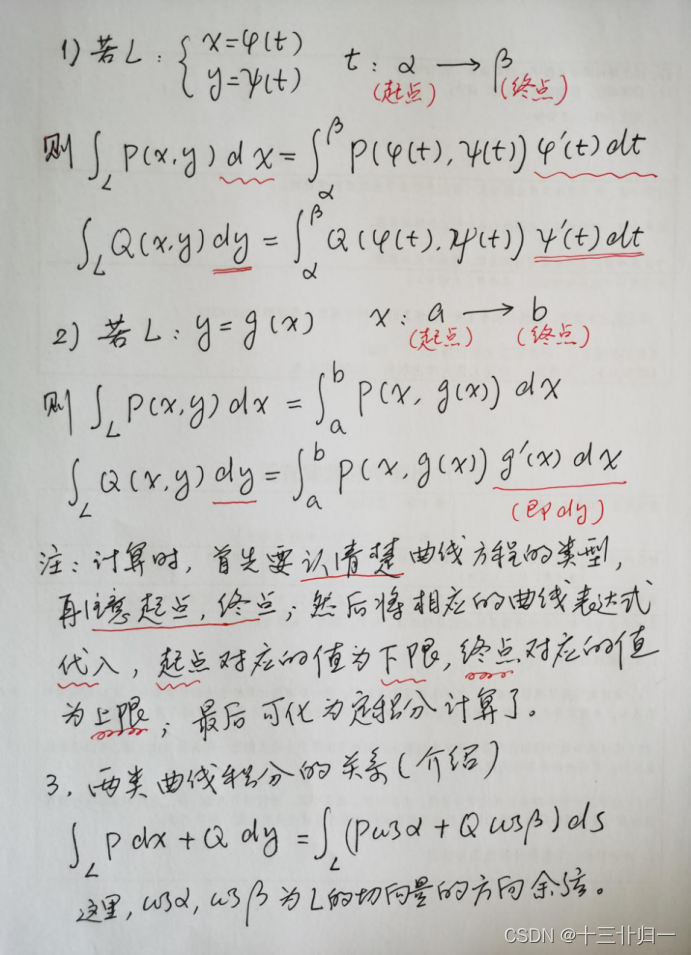 1) 若L: { x=φ(t)  t: α ⟶ β
y=ψ(t)  (起点) (终点)
则 ∫_L P(x,y) dx = ∫_α^β P(φ(t), ψ(t)) φ′(t) dt
∫_L Q(x,y) dy = ∫_α^β Q(φ(t), ψ(t)) ψ′(t) dt
2) 若L: y=g(x)  x: a ⟶ b
(起点) (终点)
则 ∫_L P(x,y) dx = ∫_a^b P(x, g(x)) dx
∫_L Q(x,y) dy = ∫_a^b P(x, g(x)) g′(x) dx
(即dy)
注: 计算时, 首先要认清楚曲线方程的类型,
再注意起点, 终点; 然后将相应的曲线表达式
代入, 起点对应的值为下限, 终点对应的值
为上限; 最后可化为定积分计算了。
3. 两类曲线积分的关系(介绍)
∫_L P dx + Q dy = ∫_L (P cosα + Q cosβ) ds
这里, cosα, cosβ 为L的切向量的方向余弦。
CSDN @十三卝归一